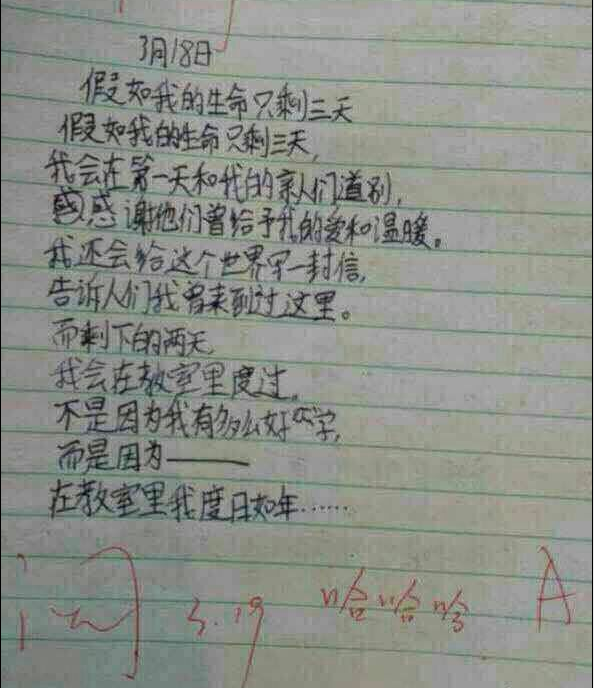 3月18日
假如我的生命只剩三天
假如我的生命只剩三天,
我会在第一天和我的亲人们道别,
感谢他们曾给予我的爱和温暖。
我还会给这个世界写一封信,
告诉人们我曾来到过这里。
而剩下的两天,
我会在教室里度过。
不是因为我有多么好学,
而是因为——
在教室里我度日如年……
阅 3.19 哈哈哈 A